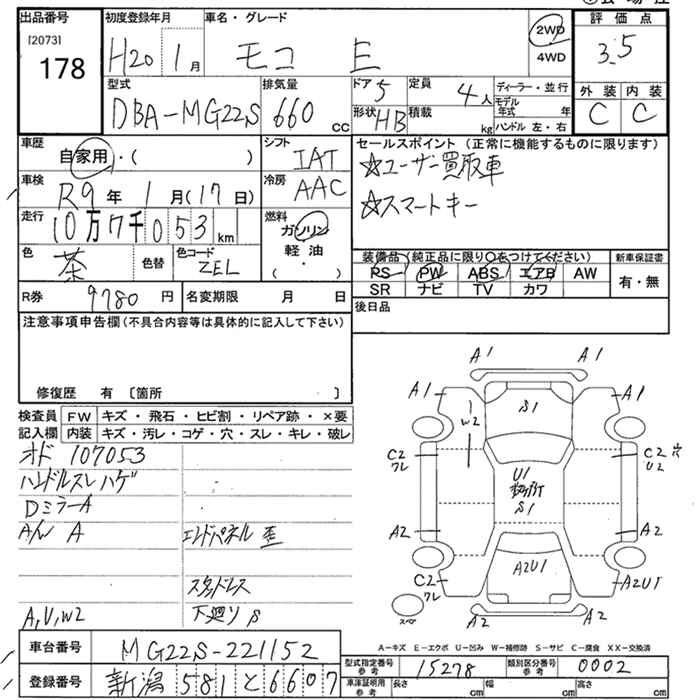 出品番号
[2073]
178
初度登録年月
H20 1月
車名・グレード
モコ E
2WD
4WD
評価点
3.5
外装 内装
C C
型式
DBA-MG22S
排気量
660 cc
ドア 5
形状 HB
定員 4人
積載 kg
ディーラー・並行
モデル年式 年
ハンドル 左・右
車歴
自家用・( )
シフト
IAT
車検
R9年 1月(17日)
冷房
AAC
走行
10万7千053 km
燃料
ガソリン
軽油
( ・ )
色
茶
色替
色コード
ZEL
R券 9780円
名変期限 月 日
セールスポイント (正常に機能するものに限ります)
☆ユーザー買取車
☆スマートキー
装備品(純正品に限り○をつけてください)
PS PW ABS エアB AW
SR ナビ TV カワ
新車保証書
有・無
後日品
注意事項申告欄(不具合内容等は具体的に記入して下さい)
修復歴 有 〔箇所 〕
検査員記入欄
FW キズ・飛石・ヒビ割・リペア跡・×要
内装 キズ・汚レ・コゲ・穴・スレ・キレ・破レ
オド 107053
ハンドルスレハゲ
DミラーA
A/W A
エンドパネル 歪
スタッドレス
A,U,W2
下廻り S
A1 A1
A1 A1
S1
W2
C2 クレ
C2 穴
U2
U1
S1
A2 A2
A2U1
C2 クレ
A2U1
スペ
A2 A2
A-キズ E-エクボ U-凹み W-補修跡 S-サビ C-腐食 XX-交換済
車台番号 MG22S-221152
登録番号 新潟 581 と 6607
型式指定番号 参考 15278
類別区分番号 参考 0002
車庫証明用 参考
長さ cm
幅 cm
高さ cm